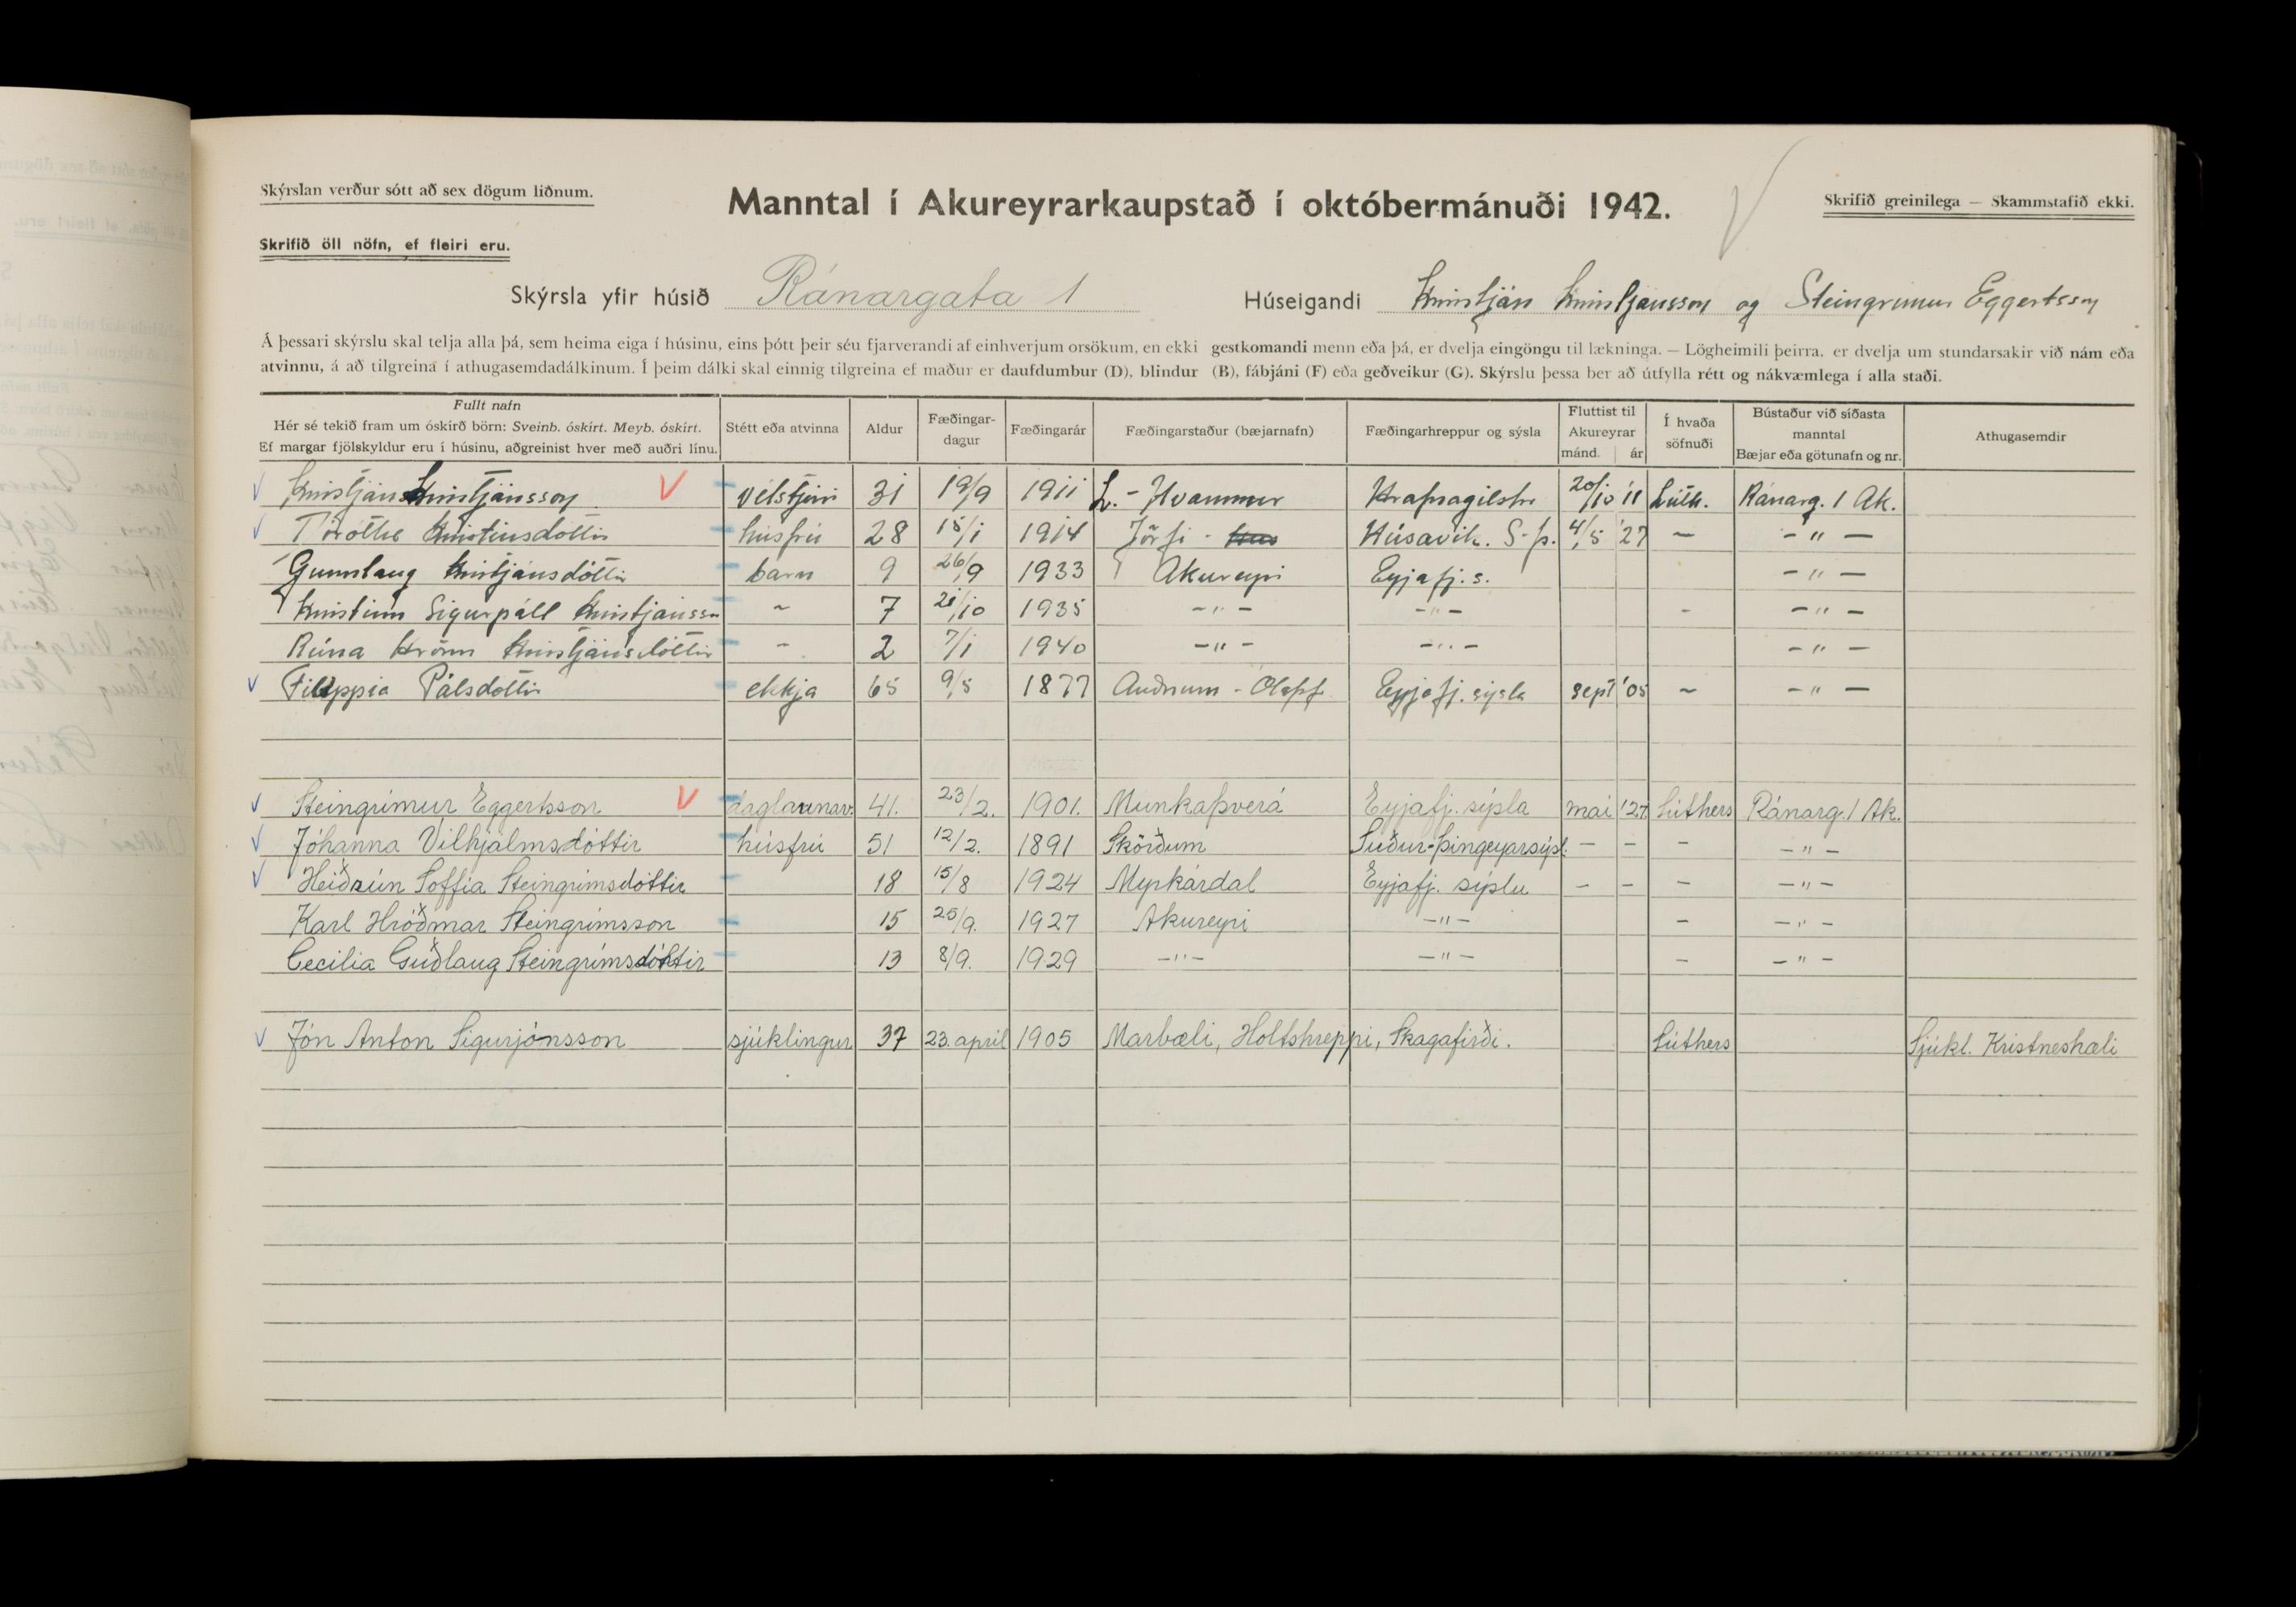 Skýrslan verður sótt að sex dögum liðnum.
Manntal í Akureyrarkaupstað í októbermánuði 1942.
Skrifið greinilega — Skammstafið ekki.
Skrifið öll nöfn, ef fleiri eru.
Skýrsla yfir húsið Ránargata 1 Húseigandi Kristján Kristjánsson og Steingrímur Eggertsson
Á þessari skýrslu skal telja alla þá, sem heima eiga í húsinu, eins þótt þeir séu fjarverandi af einhverjum orsökum, en ekki gestkomandi menn eða þá, er dvelja eingöngu til lækninga. — Lögheimili þeirra. er dvelja um stundarsakir við nám eða
atvinnu, á að tilgreina í athugasemdadálkinum. Í þeim dálki skal einnig tilgreina ef maður er daufdumbur (D), blindur (B), fábjáni (F) eða geðveikur (G). Skýrslu þessa ber að útfylla rétt og nákvæmlega í alla staði.
Fullt nafn
Hér sé tekið fram um óskírð börn: Sveinb. óskírt. Meyb. óskírt.
Ef margar fjölskyldur eru í húsinu, aðgreinist hver með auðri línu.
Stétt eða atvinna
Aldur
Fæðingar-
dagur
Fæðingarár
Fæðingarstaður (bæjarnafn)
Fæðingarhreppur og sýsla
Fluttist til
Akureyrar
mánd. ár
Í hvaða
söfnuði
Bústaður við síðasta
manntal
Bæjar eða götunafn og nr.
Athugasemdir
Kristján Kristjánsson vélstjóri 31 19/9 1911 L.- Hvammur Hrafnagilshr 20/10 '11 Lúth. Ránarg. 1 Ak.
Kristinsdóttir húsfrú 28 15/1 1914 Jörfi - Húsavík. S-þ. 4/5 '27 ~ -"-
Gunnlaug Kristjánsdóttir barn 9 26/9 1933 Akureyri Eyjafj.s. -"-
Kristinn Sigurpáll Kristjánsson ~ 7 21/10 1935 -"- -"- - -"-
Rúna Hrönn Kristjánsdóttir - 2 7/1 1940 -"- -"- -"-
Filippía Pálsdóttir ekkja 65 9/5 1877 Auðnum - Ólafsf. Eyjafj. sýsla sept '05 ~ -"-
Steingrímur Eggertsson daglaunam. 41. 23/2. 1901. Munkaþverá Eyjafj. sýsla maí '27 Lúthers Ránarg. 1 Ak.
Jóhanna Vilhjálmsdóttir húsfrú 51 12/2. 1891 Skörðum Suður-Þingeyarsýsl. - - - -"-
Heiðrún Soffía Steingrímsdóttir 18 15/8 1924 Myrkárdal Eyjafj. sýslu - - - -"-
Karl Hróðmar Steingrímsson 15 25/9. 1927 Akureyri -"- - -"-
Cecilia Guðlaug Steingrímsdóttir 13 8/9. 1929 -"- -"- - -"-
Jón Anton Sigurjónsson sjúklingur 37 23. apríl 1905 Marbæli, Holtshreppi, Skagafirði. Lúthers Sjúkl. Kristneshæli